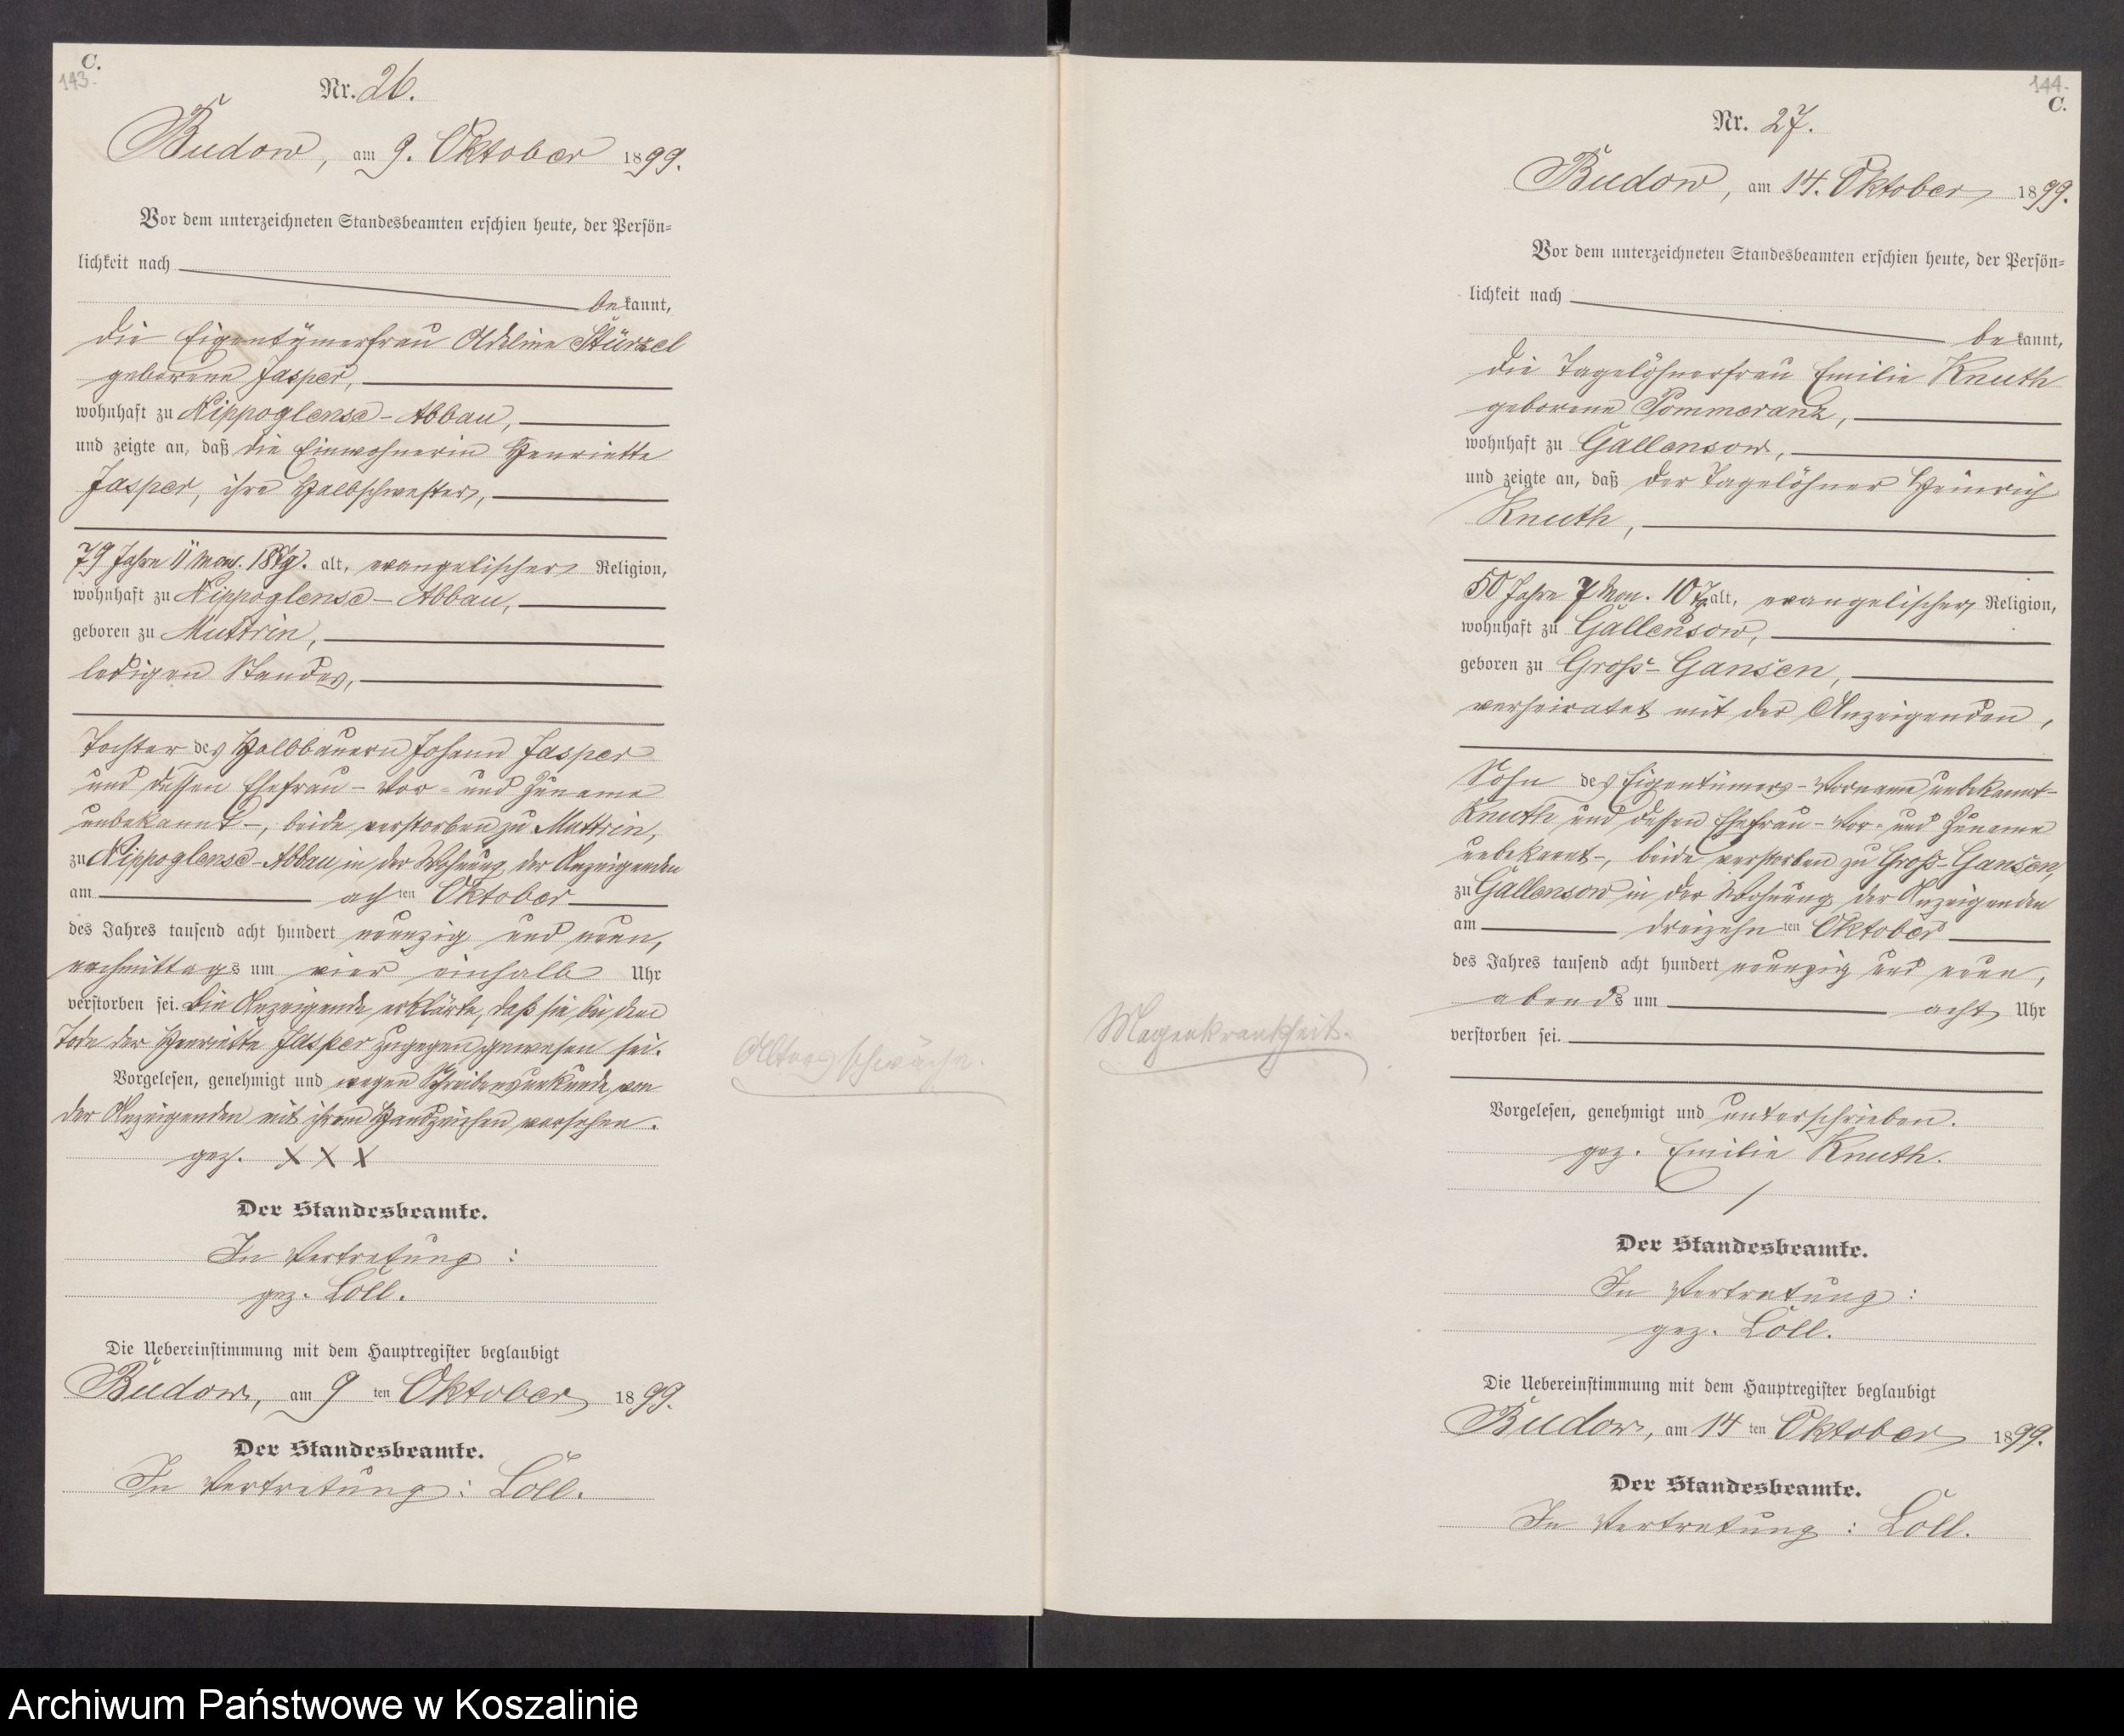 C.
143.
Nr. 26.
Budow, am 9. Oktober 1899.
Vor dem unterzeichneten Standesbeamten erschien heute, der Persön=
lichkeit nach
bekannt,
die Eigentümerfrau Adeline Stürzel
geborene Jasper,
wohnhaft zu Nippoglense-Abbau,
und zeigte an, daß die Einwohnerin Henriette
Jasper, ihre Halbschwester,
79 Jahre 11 Mon. 18 Tg. alt, evangelischer Religion,
wohnhaft zu Nippoglense-Abbau,
geboren zu Muttrin,
ledigen Standes,
Tochter des Halbbauern Johann Jasper
und dessen Ehefrau - Vor- und Zuname
unbekannt -, beide verstorben zu Muttrin,
zu Nippoglense-Abbau in der Wohnung der Anzeigenden
am achten Oktober
des Jahres tausend acht hundert neunzig und neun,
nachmittags um vier einhalb Uhr
verstorben sei. Die Anzeigende erklärte, daß sie bei dem
Tode der Henriette Jasper zugegen gewesen sei.
Vorgelesen, genehmigt und wegen Schreibensunkunde von
der Anzeigenden mit ihrem Handzeichen versehen.
gez. XXX
Der Standesbeamte.
In Vertretung:
gez. Loll.
Die Uebereinstimmung mit dem Hauptregister beglaubigt
Budow, am 9ten Oktober 1899.
Der Standesbeamte.
In Vertretung: Loll.
Altersschwäche.
144.
C.
Nr. 27.
Budow, am 14. Oktober 1899.
Vor dem unterzeichneten Standesbeamten erschien heute, der Persön=
lichkeit nach
bekannt,
die Tagelöhnerfrau Emilie Knuth
geborene Pommeranz,
wohnhaft zu Gallensow,
und zeigte an, daß der Tagelöhner Heinrich
Knuth,
50 Jahre 7 Mon. 10 Tg. alt, evangelischer Religion,
wohnhaft zu Gallensow,
geboren zu Groß-Gansen,
verheiratet mit der Anzeigenden,
Sohn des Eigentümers - Vorname unbekannt -
Knuth und dessen Ehefrau - Vor- und Zuname
unbekannt -, beide verstorben zu Groß-Gansen,
zu Gallensow in der Wohnung der Anzeigenden
am dreizehnten Oktober
des Jahres tausend acht hundert neunzig und neun,
abends um acht Uhr
verstorben sei.
Vorgelesen, genehmigt und unterschrieben.
gez. Emilie Knuth.
Der Standesbeamte.
In Vertretung:
gez. Loll.
Die Uebereinstimmung mit dem Hauptregister beglaubigt
Budow, am 14ten Oktober 1899.
Der Standesbeamte.
In Vertretung: Loll.
Magenkrankheit.
Archiwum Państwowe w Koszalinie